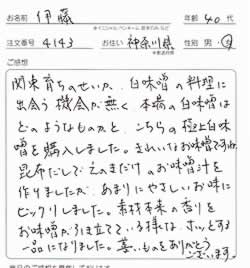 お名前 伊藤 年齢 40代
※イニシャル、ペンネーム、匿名希望 など
注文番号 4143 お住い 神奈川県 性別 男・女
※都道府県
ご感想
関東育ちのせいか、白味噌の料理に
出会う機会が無く 本場の白味噌は
どのようなものかと、こちらの極上白味
噌を購入しました。きれいなお味噌ですね。
昆布だしでえのきだけのお味噌汁を
作りましたが、あまりにやさしいお味に
ビックリしました。素材本来の香りを
お味噌が引き立てている様な、ホッとする
一品になりました。善いものをありがとう
ございます。